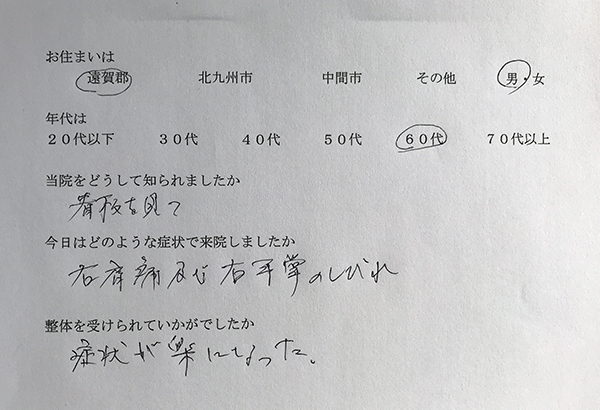 お住まいは
遠賀郡 北九州市 中間市 その他 男・女
年代は
20代以下 30代 40代 50代 60代 70代以上
当院をどうして知られましたか
看板を見て
今日はどのような症状で来院しましたか
右肩痛及び右手掌のしびれ
整体を受けられていかがでしたか
症状が楽になった。